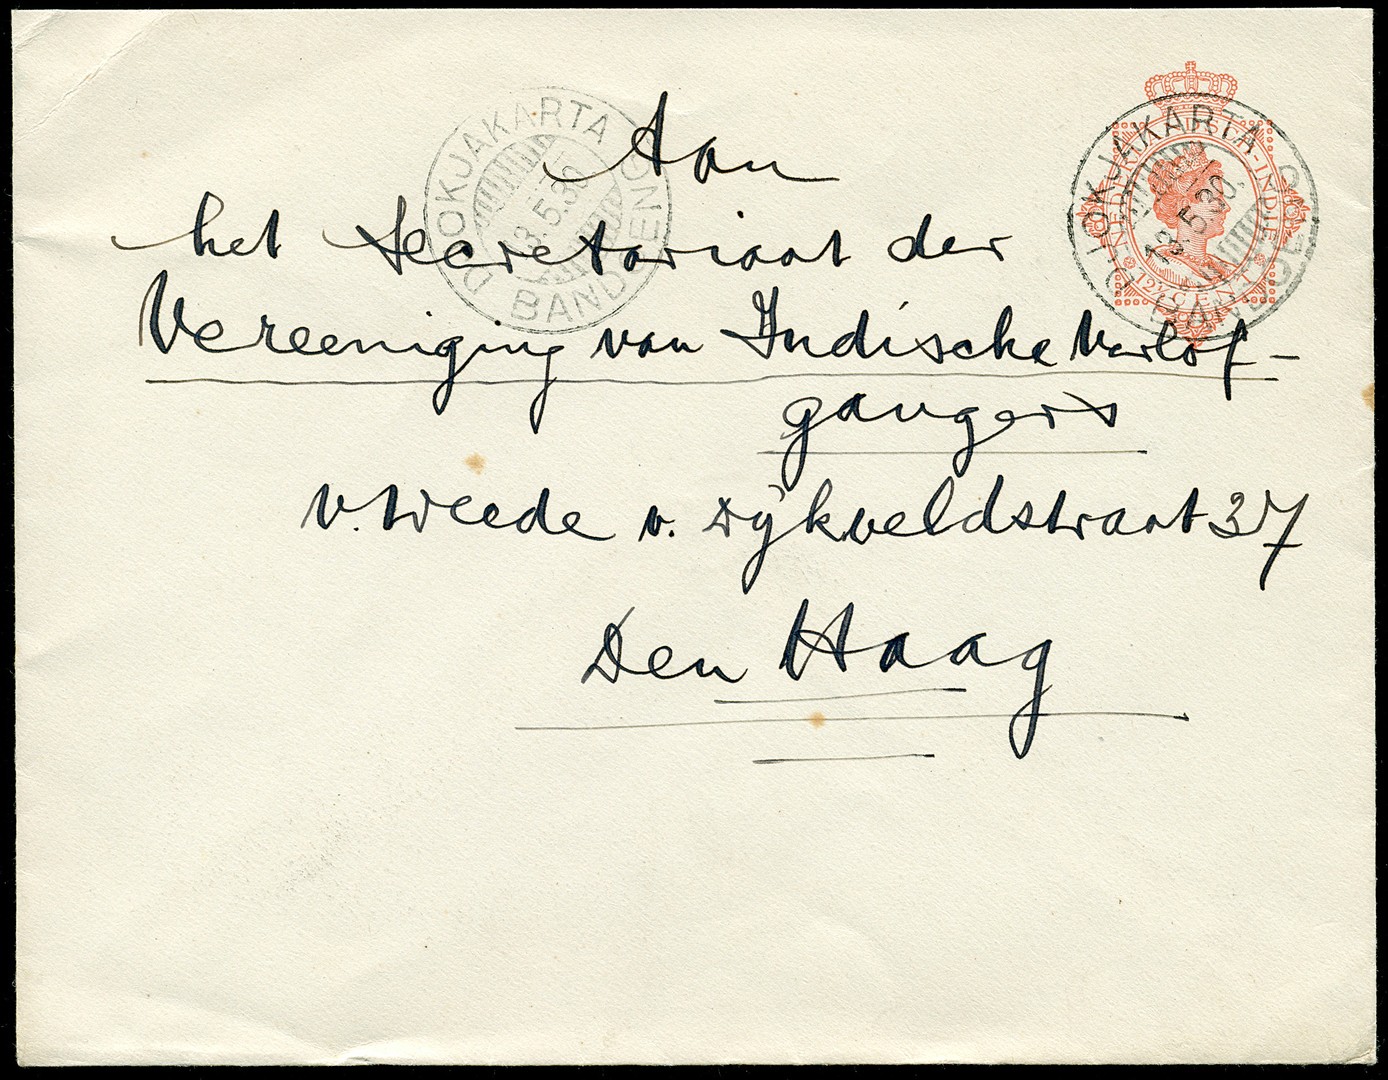 DJOKJAKARTA
13.5.30
BANDOENG
DJOKJAKARTA
13.5.30.
BANDOENG
NEDERLANDSCH-INDIE
12½ CENT
Aan
het Secretariaat der
Vereeniging van Indische Verlof-
gangers
v. Weede v. Dijkveldstraat 37
Den Haag